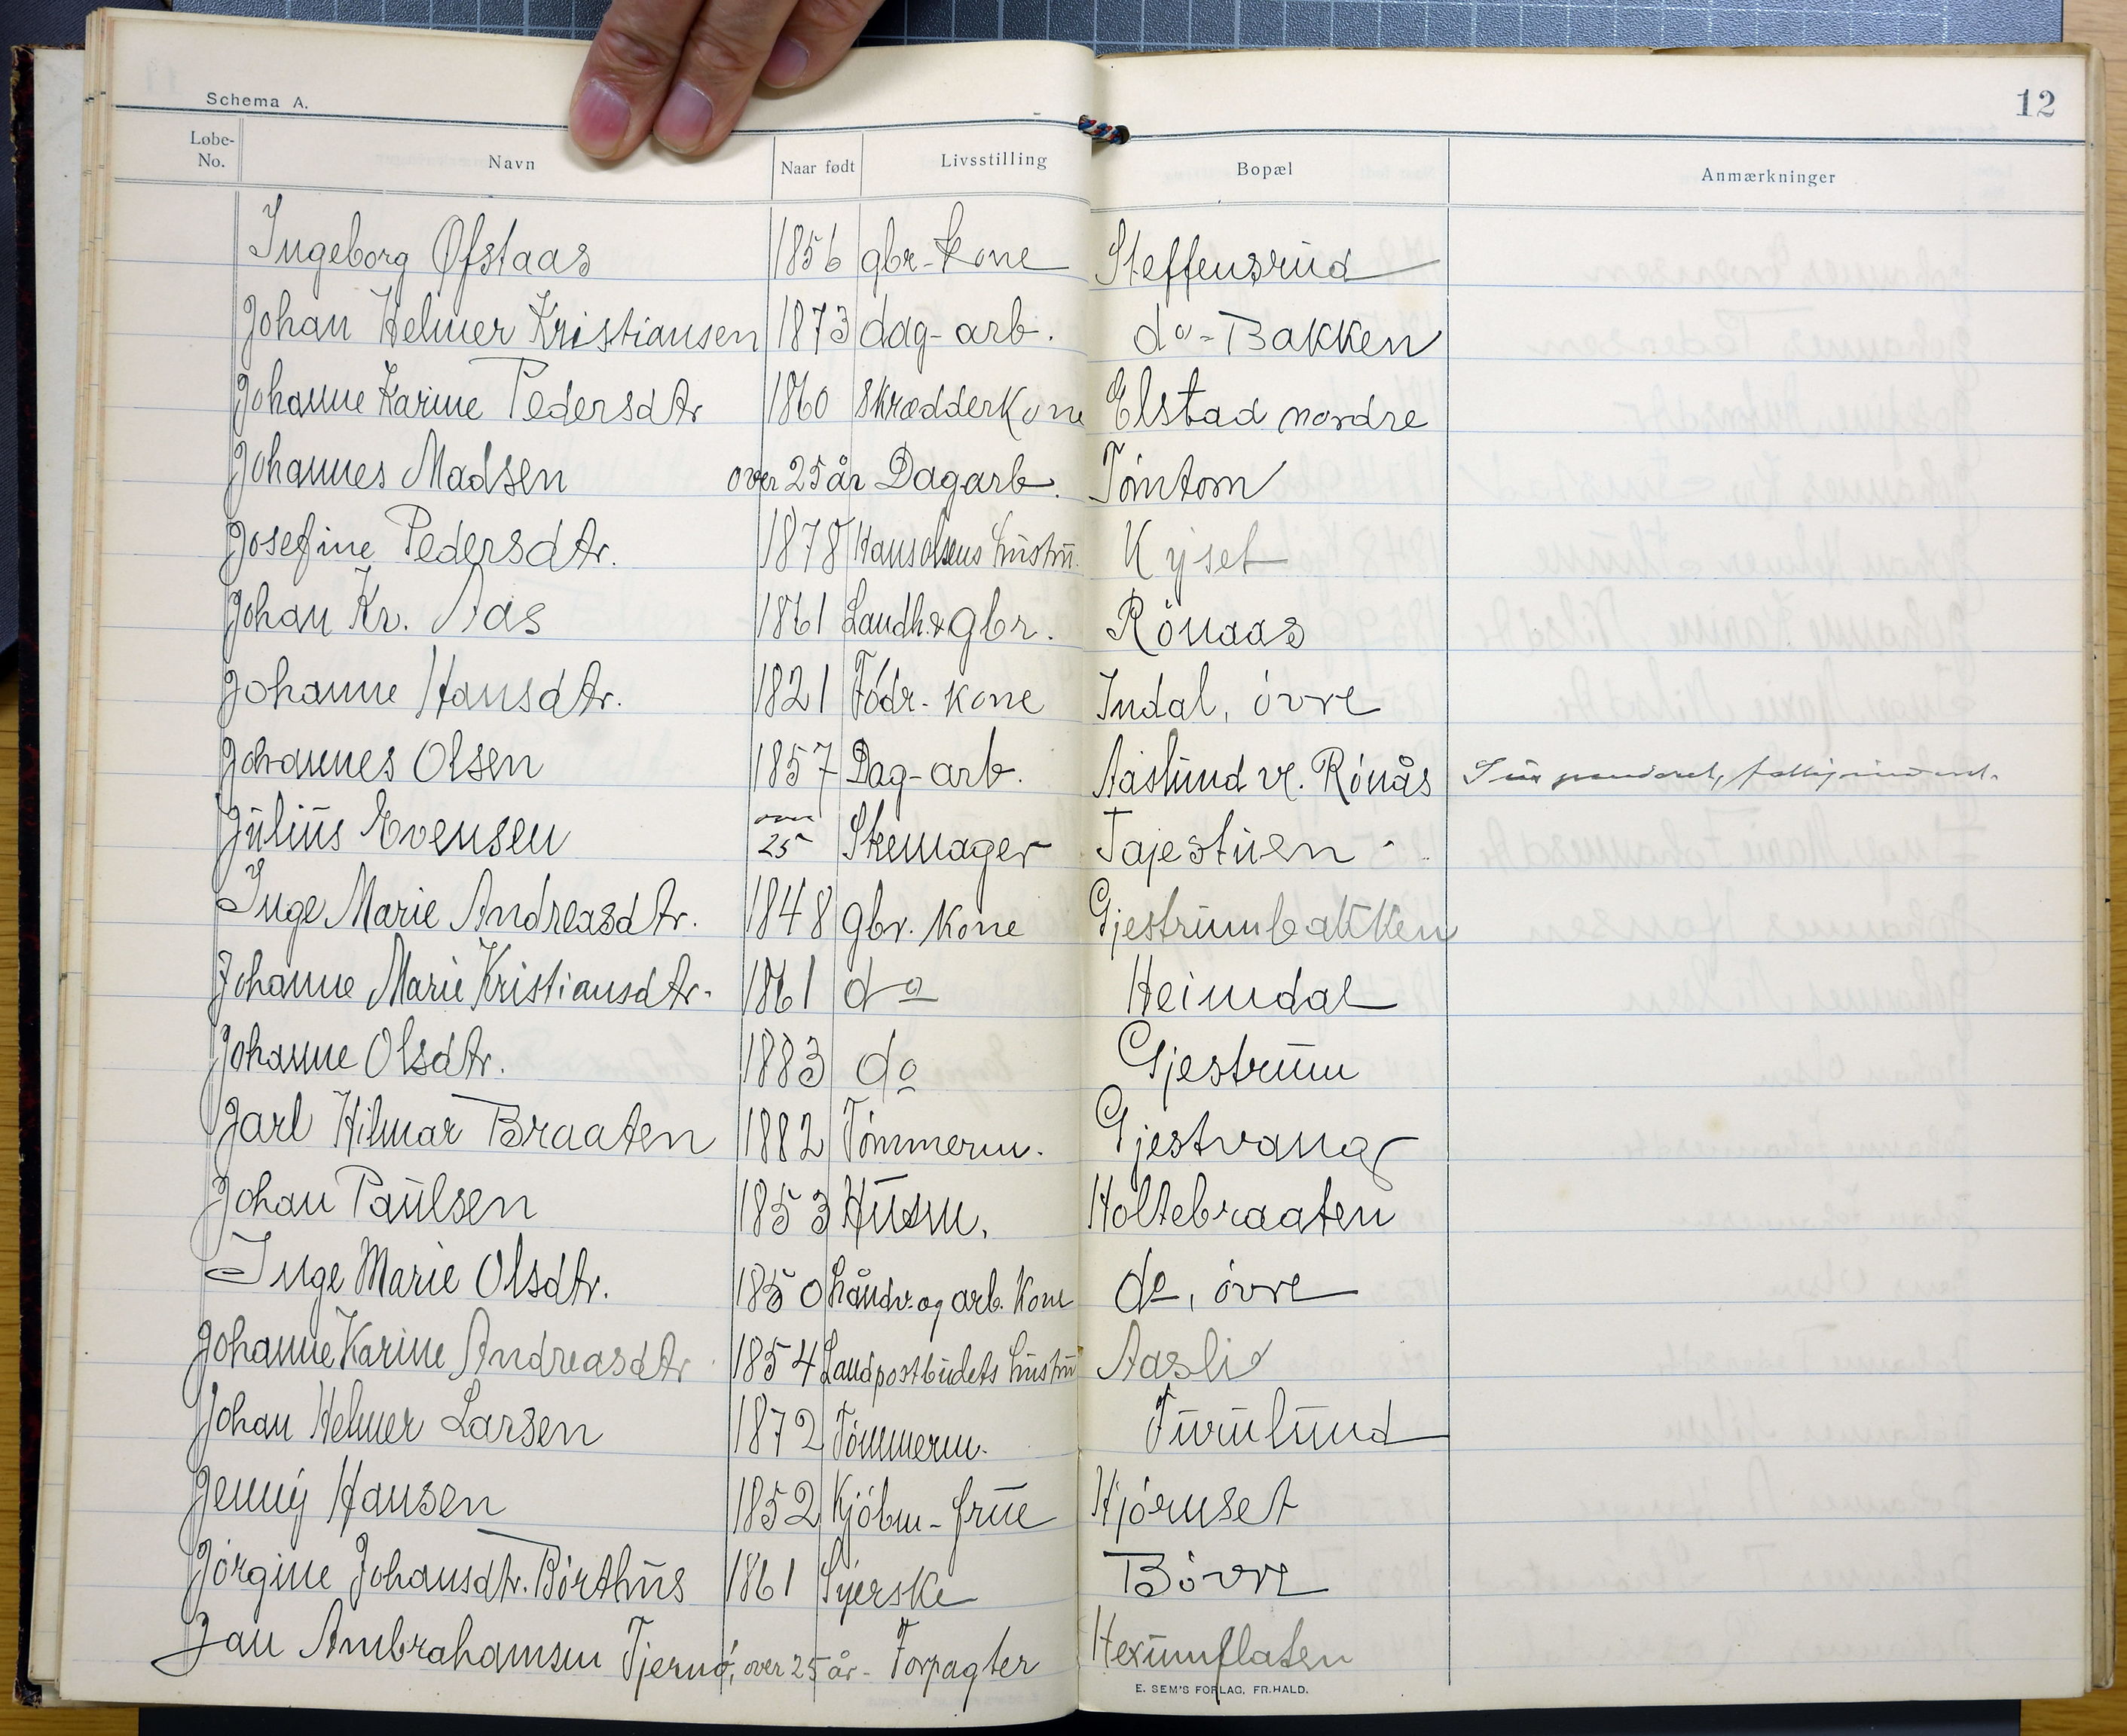 Schema A.
12
Løbe-No. Navn Naar født Livsstilling Bopæl Anmærkninger
Ingeborg Øfstaas 1856 gbr-kone Steffensrud
Johan Helmer Kristiansen 1873 dag-arb. do-Bakken
Johanne Karine Pedersdtr 1860 Skrædderkone Elstad nordre
Johannes Madsen over 25 år Dagarb. Tömtom
Josefine Pedersdtr. 1878 Hans Olsens hustru Kyset
Johan Kr. Aas 1861 Landh. & gbr. Rönaas
Johanne Hansdtr. 1821 Födr-kone Indal, övre
Johannes Olsen 1857 Dag-arb. Aaslund v. Rönås Suspenderet,
Julius Evensen over 25 Skemager Tajestuen
Inge Marie Andreasdtr. 1848 gbr. kone Gjestrumbakken
Johanne Marie Kristiansdtr. 1861 do Heimdal
Johanne Olsdtr. 1883 do Gjestrum
Jarl Hilmar Braaten 1882 Tömmerm. Gjestvang
Johan Paulsen 1853 Husm. Holtebraaten
Inge Marie Olsdtr. 1850 håndv. og arb. kone do, övre
Johanne Karine Andreasdtr 1854 Landpostbudets hustru Aasli
Johan Helmer Larsen 1872 Tömmerm. Furulund
Jenny Hansen 1852 Kjöbm-frue Hjörnset
Jörgine Johansdtr. Börthus 1861 Syerske Bövre
Jan Ambrahamsen Tjernö, over 25 år - Forpagter Hexumflaten
E. SEM'S FORLAG, FR.HALD.